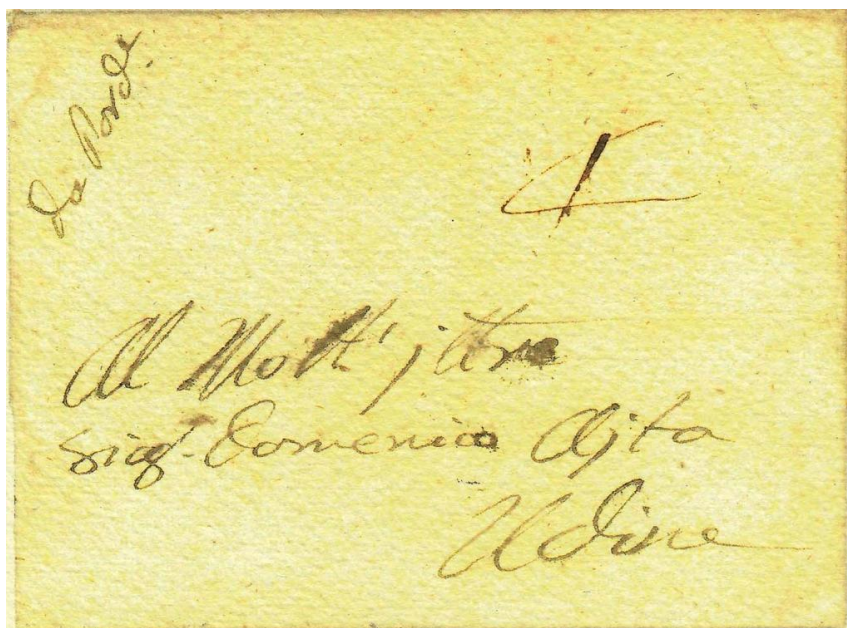 Da Pord.e
Al Molt' jttre
Sig.r Domenico Ajta
Udine